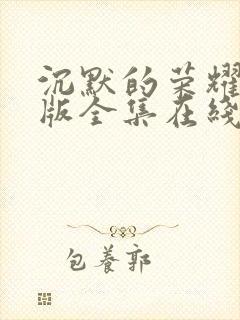 沉默的荣耀
版全集在线
包養郭